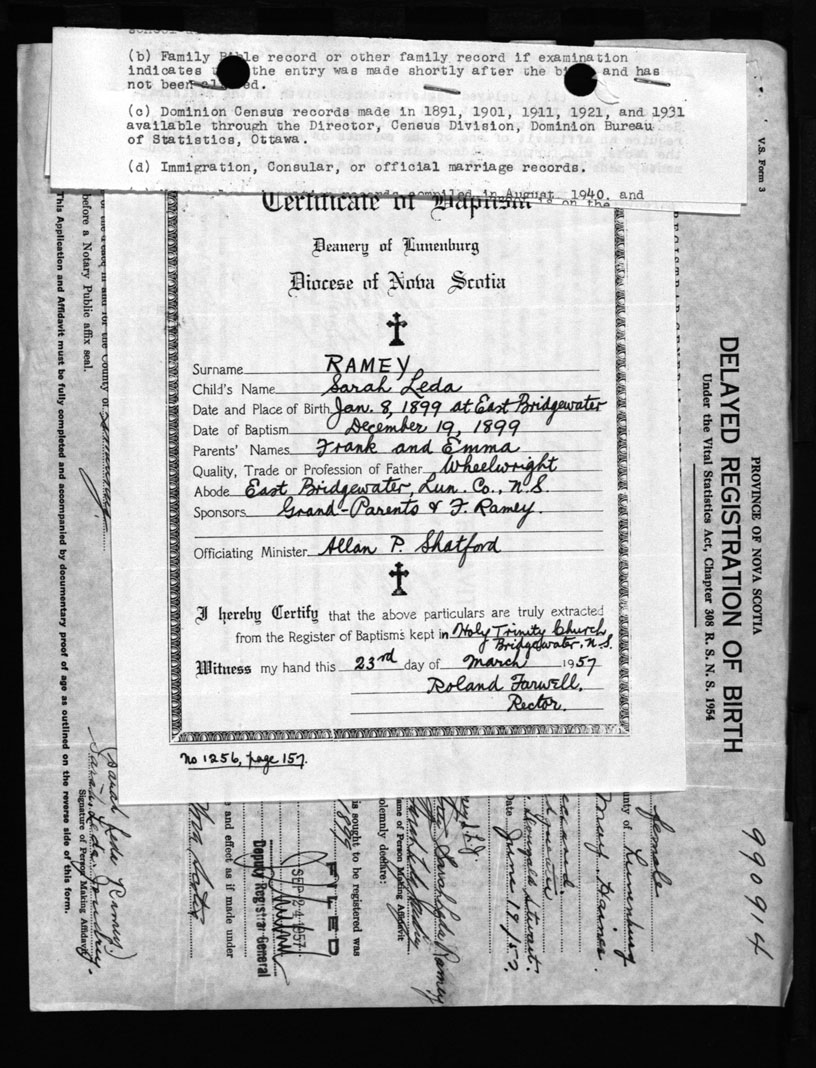 (b) Family Bible record or other family record if examination
indicates the entry was made shortly after the and has
not been
(c) Dominion Census records made in 1891, 1901, 1911, 1921, and 1931
available through the Director, Census Division, Dominion Bureau
of Statistics, Ottawa.
(d) Immigration, Consular, or official marriage records.
records compiled in August 1940, and
on the
Certificate of Baptism
Deanery of Lunenburg
Diocese of Nova Scotia
Surname RAMEY
Child's Name Sarah Leda
Date and Place of Birth Jan. 8, 1899 at East Bridgewater
Date of Baptism December 19, 1899
Parents' Names Frank and Emma
Quality, Trade or Profession of Father Wheelwright
Abode East Bridgewater, Lun. Co., N.S.
Sponsors Grand-Parents & F. Ramey.
Officiating Minister Allan P. Shatford
I hereby Certify that the above particulars are truly extracted
from the Register of Baptisms kept in Holy Trinity Church,
Bridgewater, N.S.
Witness my hand this 23rd day of March 1957
Roland Farwell,
Rector.
No 1256, page 157.
V.S. Form 3
PROVINCE OF NOVA SCOTIA
DELAYED REGISTRATION OF BIRTH
Under the Vital Statistics Act, Chapter 308 R. S. N. S. 1954
REGISTRAR GENERAL
990914
female
county of Lunenburg
Mary
Date June 19/57
Sarah Leda Ramey
ame of Person Making Affidavit
olemnly declare:
is sought to be registered was
1899
FILED
SEP 24 1957
Deputy Registrar General
e and effect as if made under
Nova Scotia
in and for the County of Lunenburg
before a Notary Public affix seal.
(Sarah Leda Ramey)
Sarah Leda
Signature of Person Making Affidavit
This Application and Affidavit must be fully completed and accompanied by documentary proof of age as outlined on the reverse side of this form.